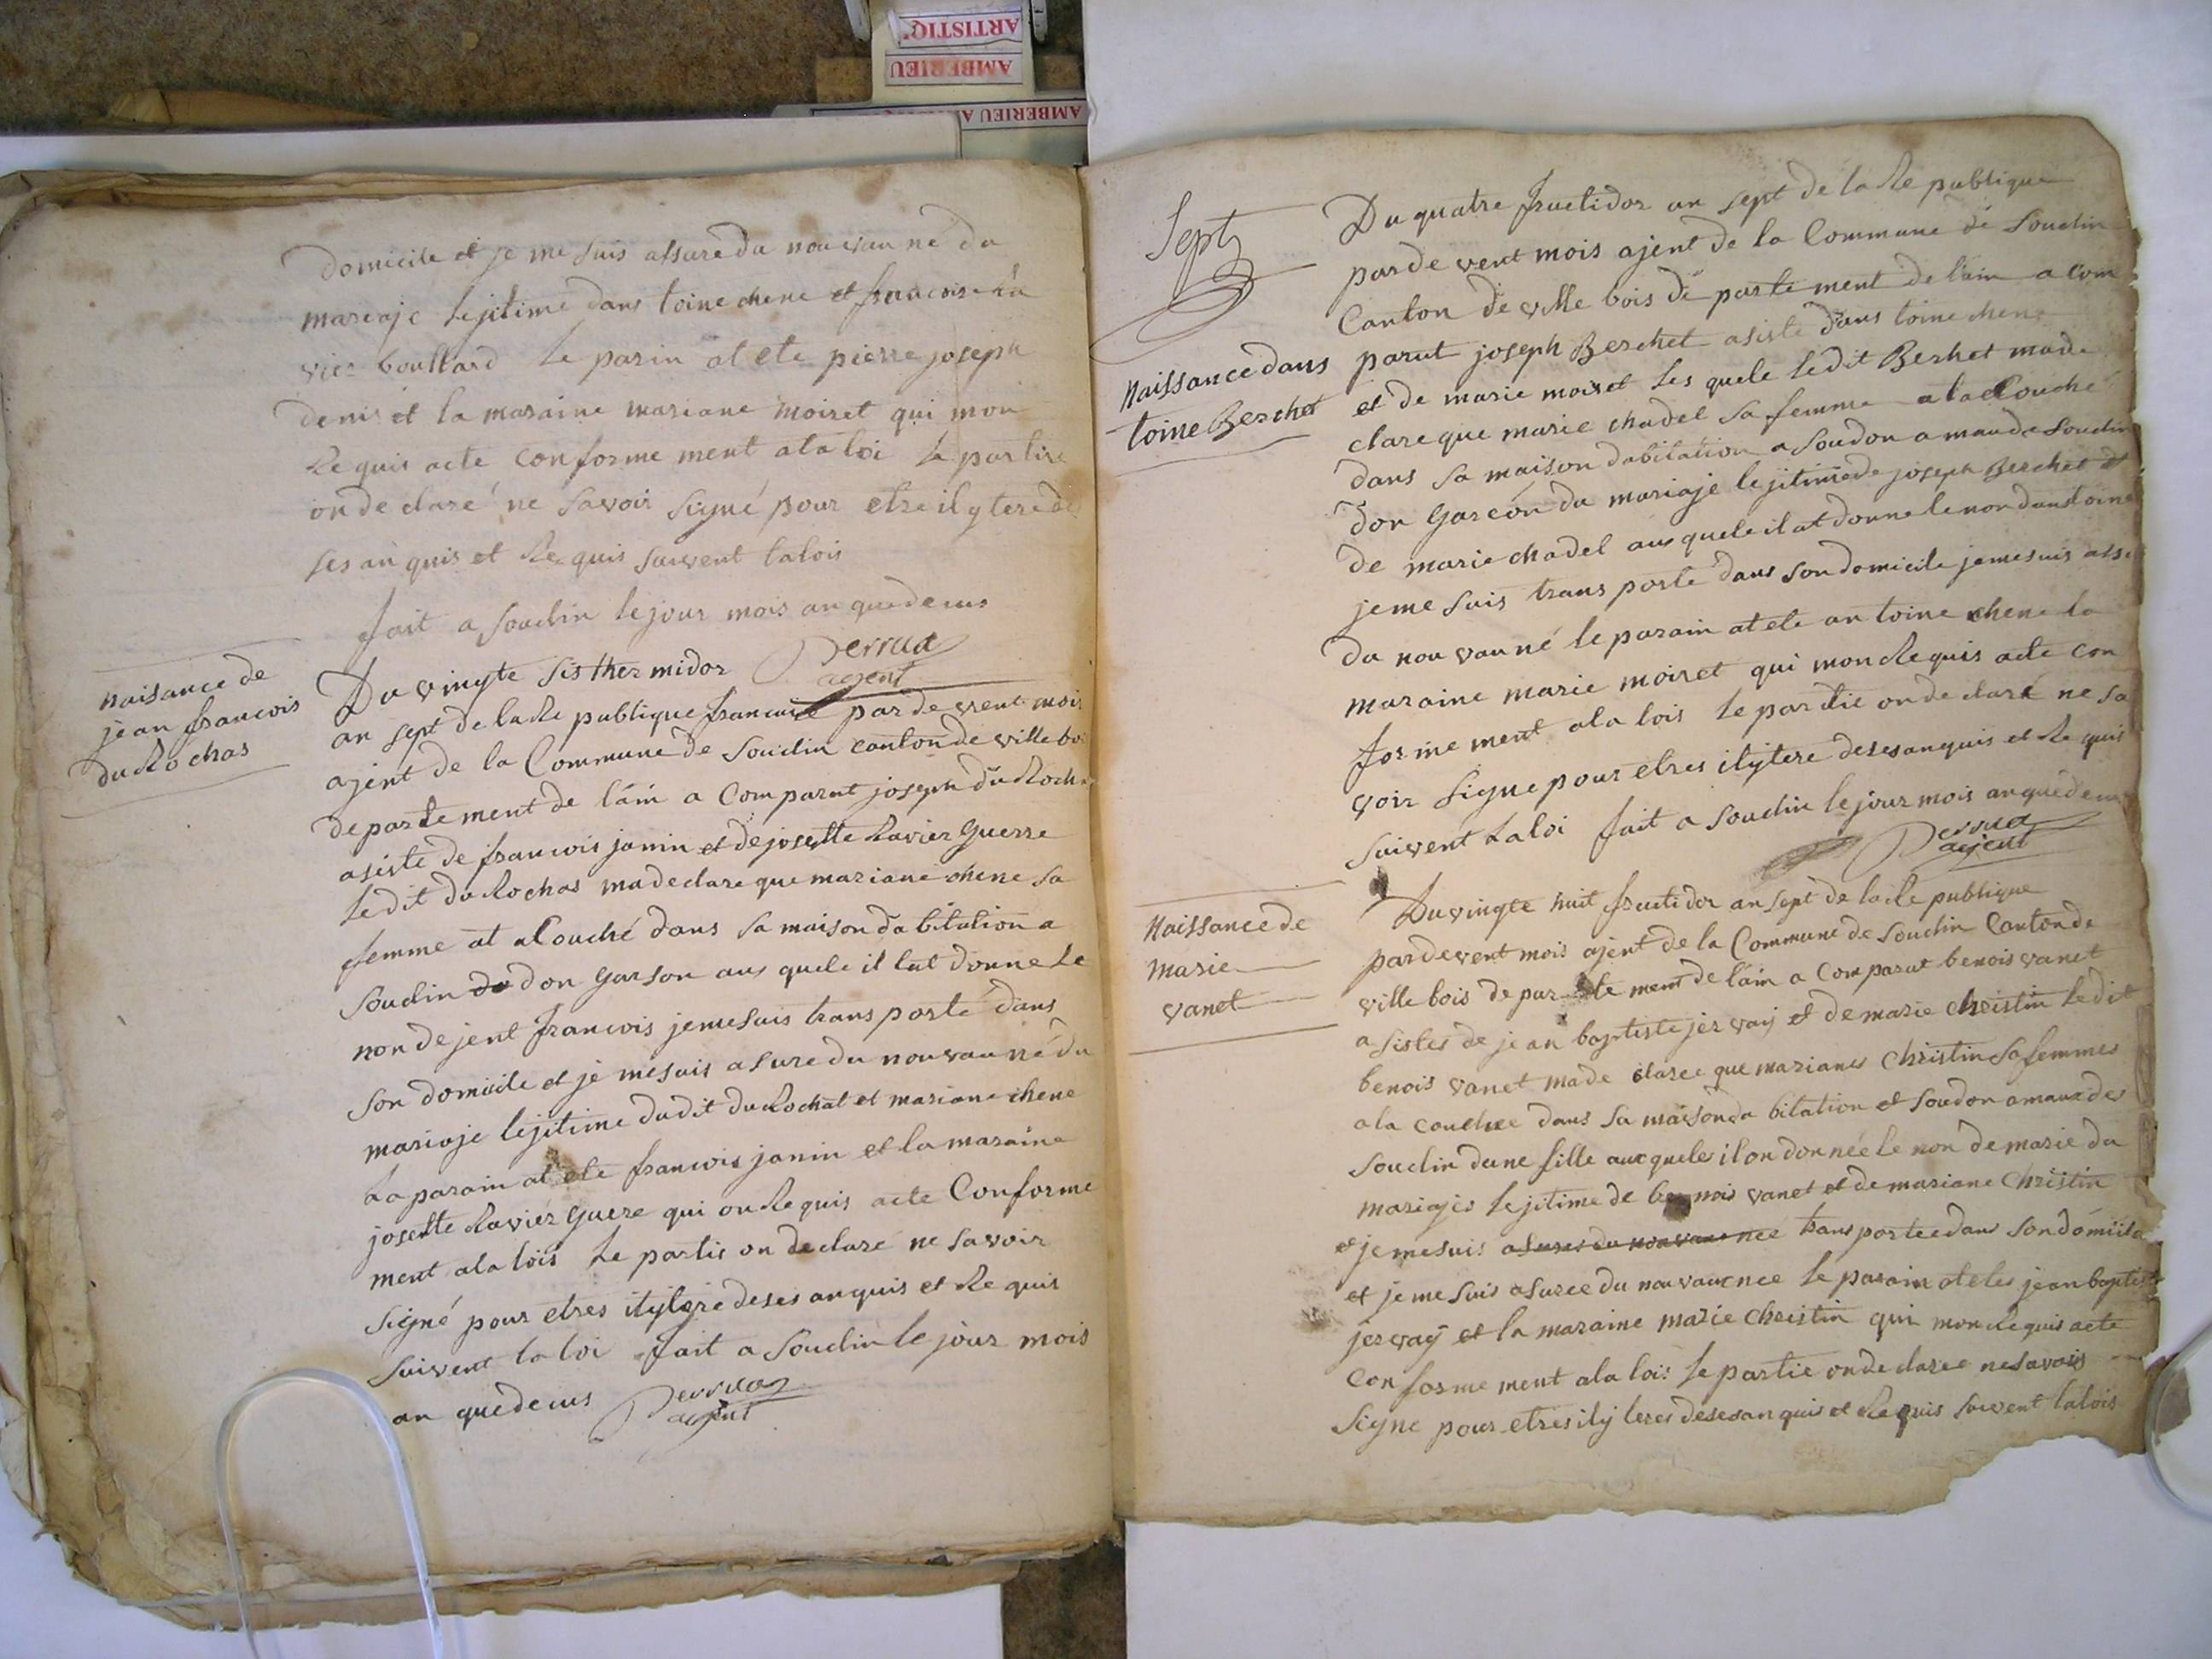 ARTISTIQ
AMBERIEU
AMBERIEU A
domicile et je me suis assure du nouvau né du
mareaje lejitime dans toine chene et francoise
vier boullard le parin at ete pierre joseph
denis et la maraine mariane moiret qui mon
Requis acte conforme ment ala loi le partire
on de claré ne savoir signé pour etre il y tere de
ses an quis et Re quis suivent la lois
fait a Soudin le jour mois an quedecus
Perrua
agent
naisance de
jean francois
du Rochas
Du vingte sis ther midor
an sept de la Re publique francaise par de vent mois
ajent de la Commune de Soudin canton de ville boi
departe ment de lain a Comparut joseph du Rocha
asiste de francois janin et de josette Ravier Guerre
le dit du Rochas ma declare que mariane chene sa
femme at aCouché dans sa maison da bitation a
Soudin do don Garson aus quele il lat donne le
non de jent francois je me suis trans porté dans
son domicile et je me suis asure du nouvau né du
mariaje lejitime du dit du Rochat et mariane chene
La parain at ete francois janin et la maraine
josette Ravier Guere qui on Requis acte Conforme
ment ala lois Le partis on declaré ne savoir
signé pour etres il y tere de ses an quis et Re quis
suivent la loi fait a Soudin le jour mois
an quedecus Perrua
agent
Sept
Naissance dans
toine Berchet
Du quatre fructidor an sept de la Re publique
par de vent mois ajent de la Commune de Soudin
Canton de ville bois de parte ment de lain a com
parut joseph Berchet asiste dans toine chene
et de marie moiret les quele le dit Berhet made
clare que marie chadel sa femme a la Couche
dans sa maison dabitation a Soudon a maude Soudin
don Garcon du mariaje lejitime de joseph Berchet et
de marie chadel aus quele il at donne le non dantoine
je me suis trans porte dans son domicile je me suis assu
du nou vau né le parain at ete an toine chene la
maraine marie moiret qui mon Requis acte con
forme ment ala lois le partie on de claré ne sa
voir signe pour etres il y tere de ses an quis et Re quis
suivent la loi fait a Soudin le jour mois an quedecus
Perrua
agent
Naissance de
marie
vanet
Du vingte huit fructidor an sept de la Re publique
par de vent mois ajent de la Commune de Soudin Canton de
ville bois de par te ment de lain a Comparut benois vanet
a sistes de jean baptiste jervaij et de marie christin le dit
benois vanet made claree que marianes christin sa femmes
a la couchee dans sa maison da bitation et Soudon a maudes
Soudin dune fille auxqueles il on donnée le non de marie du
mariajes lejitime de benois vanet et de mariane Christin
et je me suis asures du nouvau nee trans portee dans son domicile
et je me suis asuree du nouvau nee le parain at etes jean baptiste
jervaij et la maraine marie christin qui mon Requis acte
Con forme ment ala lois le partie on de claree ne savois
Signe pour etres il y teres de ses an quis et Requis suivent la lois